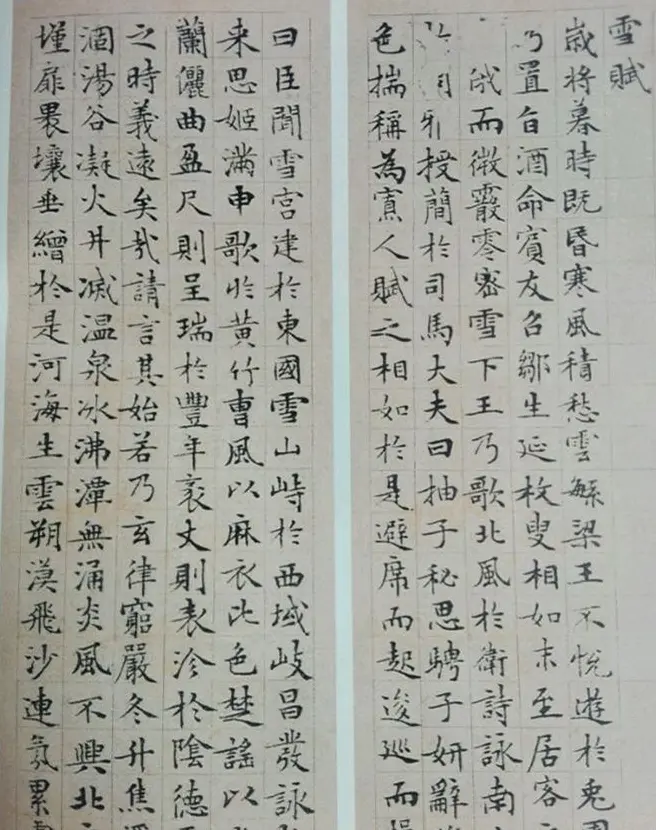 雪賦
歲將暮時既昏寒風積愁雲繁梁王不悅遊於兎
乃置旨酒命賓友召鄒生延枚叟相如末至居客
俄而微霰零密雪下王乃歌北風於衛詩詠南
於周雅授簡於司馬大夫曰抽子秘思騁子妍辭
色揣稱為寡人賦之相如於是避席而起逡巡而
曰臣聞雪宮建於東國雪山峙於西域岐昌發詠
来思姬滿申歌於黃竹曹風以麻衣比色楚謠以
蘭儷曲盈尺則呈瑞於豐年袤丈則表沴於陰德
之時義遠矣哉請言其始若乃玄律窮嚴冬升焦
涸湯谷凝火井滅温泉冰沸潭無涌炎風不興北
墐扉裸壤垂繒於是河海生雲朔漠飛沙連氛累